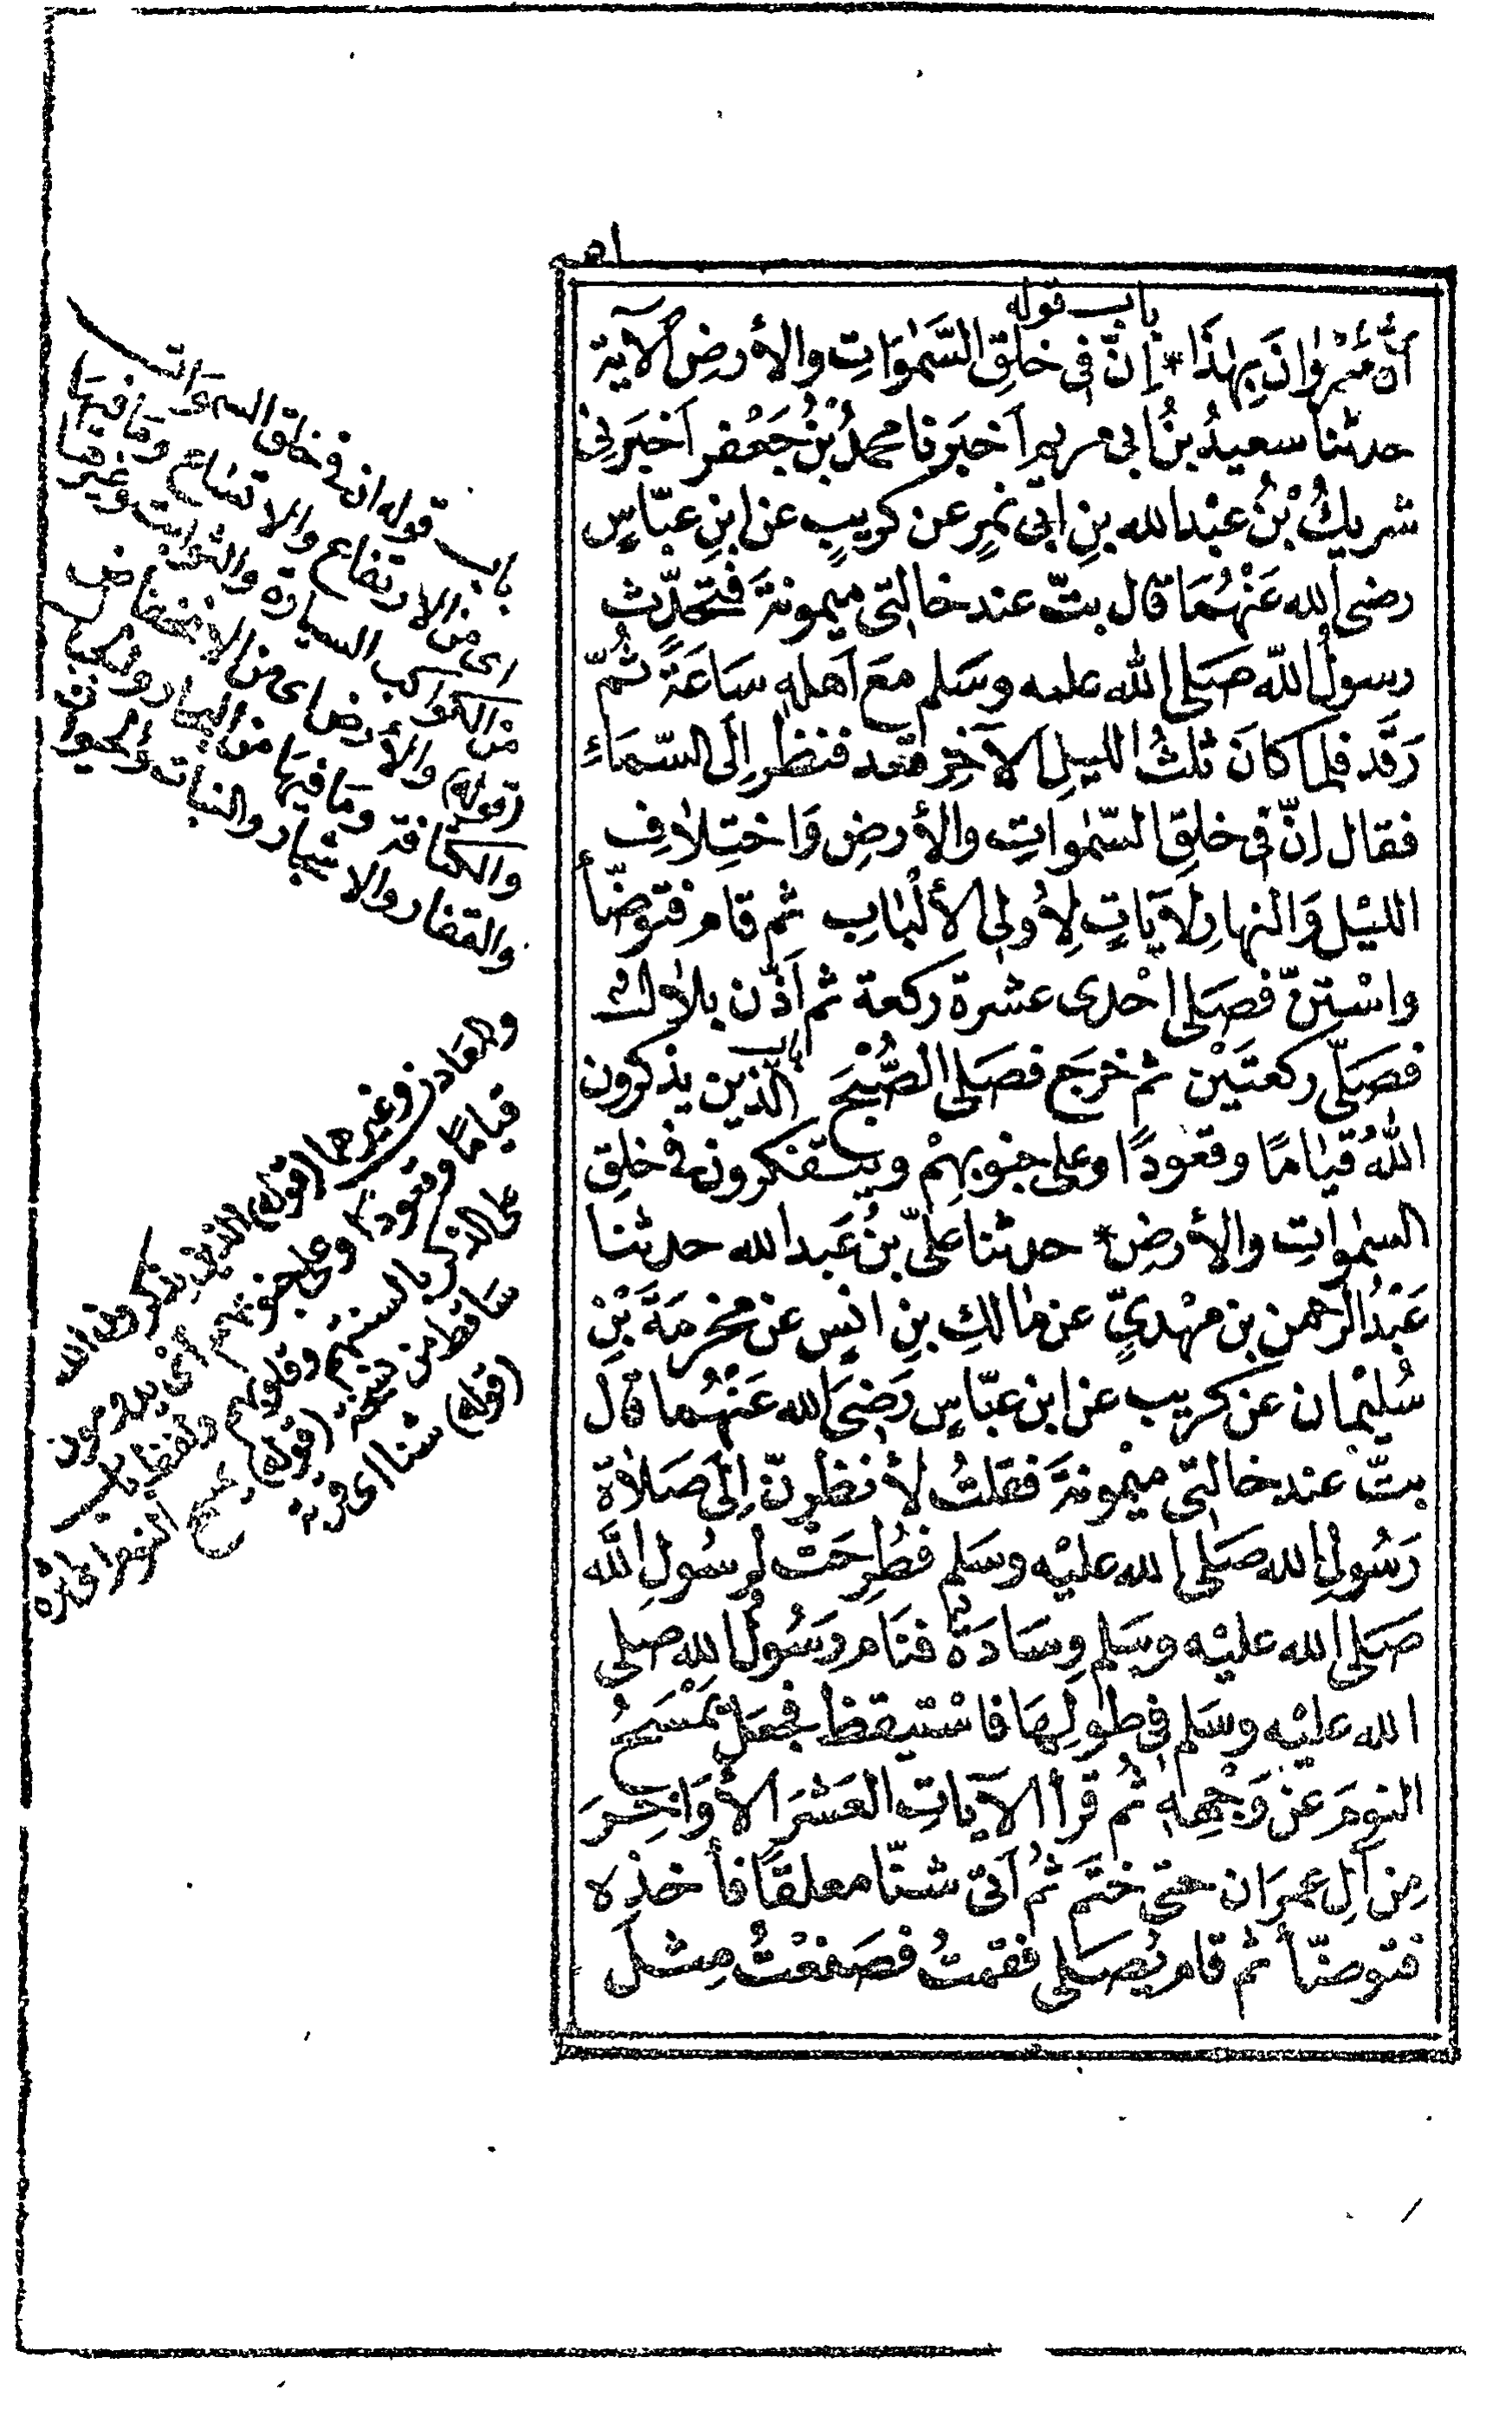 اهـ
باب قوله
أنّ مَرْوَانَ بِهٰذَا * إنّ فى خلقِ السَّمٰوَاتِ والأرضِ الآية
حدثنا سعيدُ بنُ ابى مريم اَخبَرنا محمدُ بْنُ جَعْفر اَخبَرَنِى
شريكُ بْنُ عبْدالله بنِ ابى نَمِرٍ عن كريبٍ عن ابنِ عبّاسٍ
رضى الله عَنْهُمَا قال بتّ عند خالتى ميمونةَ فتحدّث
رسولُ اللّه صَلى الله عليه وسَلم مَعَ اَهلهِ سَاعَةً ثُمّ
رَقَد فلما كانَ ثلثُ الليلِ الآخِر قعد فنظر اِلَى السّمَاءِ
فقال انّ فى خلقِ السّمٰواتِ والأرضِ وَاختِلافِ
الليْل وَالنهارِ لآيَاتٍ لِأُولى الألْبَابِ ثم قام فتوضّأ
واسْتنّ فصَلى اِحْدى عشرة ركعة ثم اَذّن بلالٌ
فصَلّى ركعتَيْن ثم خرَج فصَلى الصُّبْحَ باب الذين يذكرون
اللهَ قيَامًا وقعودًا وعلى جنوبهِمْ ويتفكرون فى خلقِ
السمٰواتِ والأرضِ * حدثنا عَلىّ بنُ عَبدالله حدثنا
عَبْدُ الرحمن بن مهْدىٍّ عن مَالكِ بنِ انسٍ عن مخرمَةَ بْنِ
سُليْمان عن كريب عن ابن عبّاسٍ رَضىَ الله عَنْهُما قال
بتّ عند خالتى ميْمونةَ فقلتُ لأنظرنّ اِلَى صَلاة
رَسُولِ الله صَلى الله عليْه وسَلم فطُرِحَتْ لرسُولِ اللّه
صَلى الله عليْه وسَلم وِسَادَةٌ فنَام رَسُولُ الله صلى
الله عليْه وسَلم فى طولِهَا فاسْتيقظ فجعَل يَمْسَحُ
النومَ عن وَجْهِه ثُم قرأ الآيَاتِ العَشْرَ الأوَاخِرَ
مِن آلِ عمرَان حتى ختَم ثُم اَتى شنّا معلقًا فأخذه
فتوضّأ ثم قام يُصَلى فقمتُ فصَنعْتُ مِثلَ
باب قوله ان فى خلق السموات
اى من الارتفاع والاتساع وما فيها
من الكواكب السيارة والثوابت وغيرها
(قوله) والأرض اى من الانخفاض
والكثافة وما فيها من البحار والجبال
والقفار والاشجار والنبات والحيوان
والمعادن وغيرها (قوله) الذين يذكرون الله
قياما وقعودا وعلى جنوبهم اى يداومون
على الذكر بالسنتهم وقلوبهم ولفظ باب
ساقط من نسخة (قوله) يمسح النوم اى اثره
(قوله) شنا اى قربة